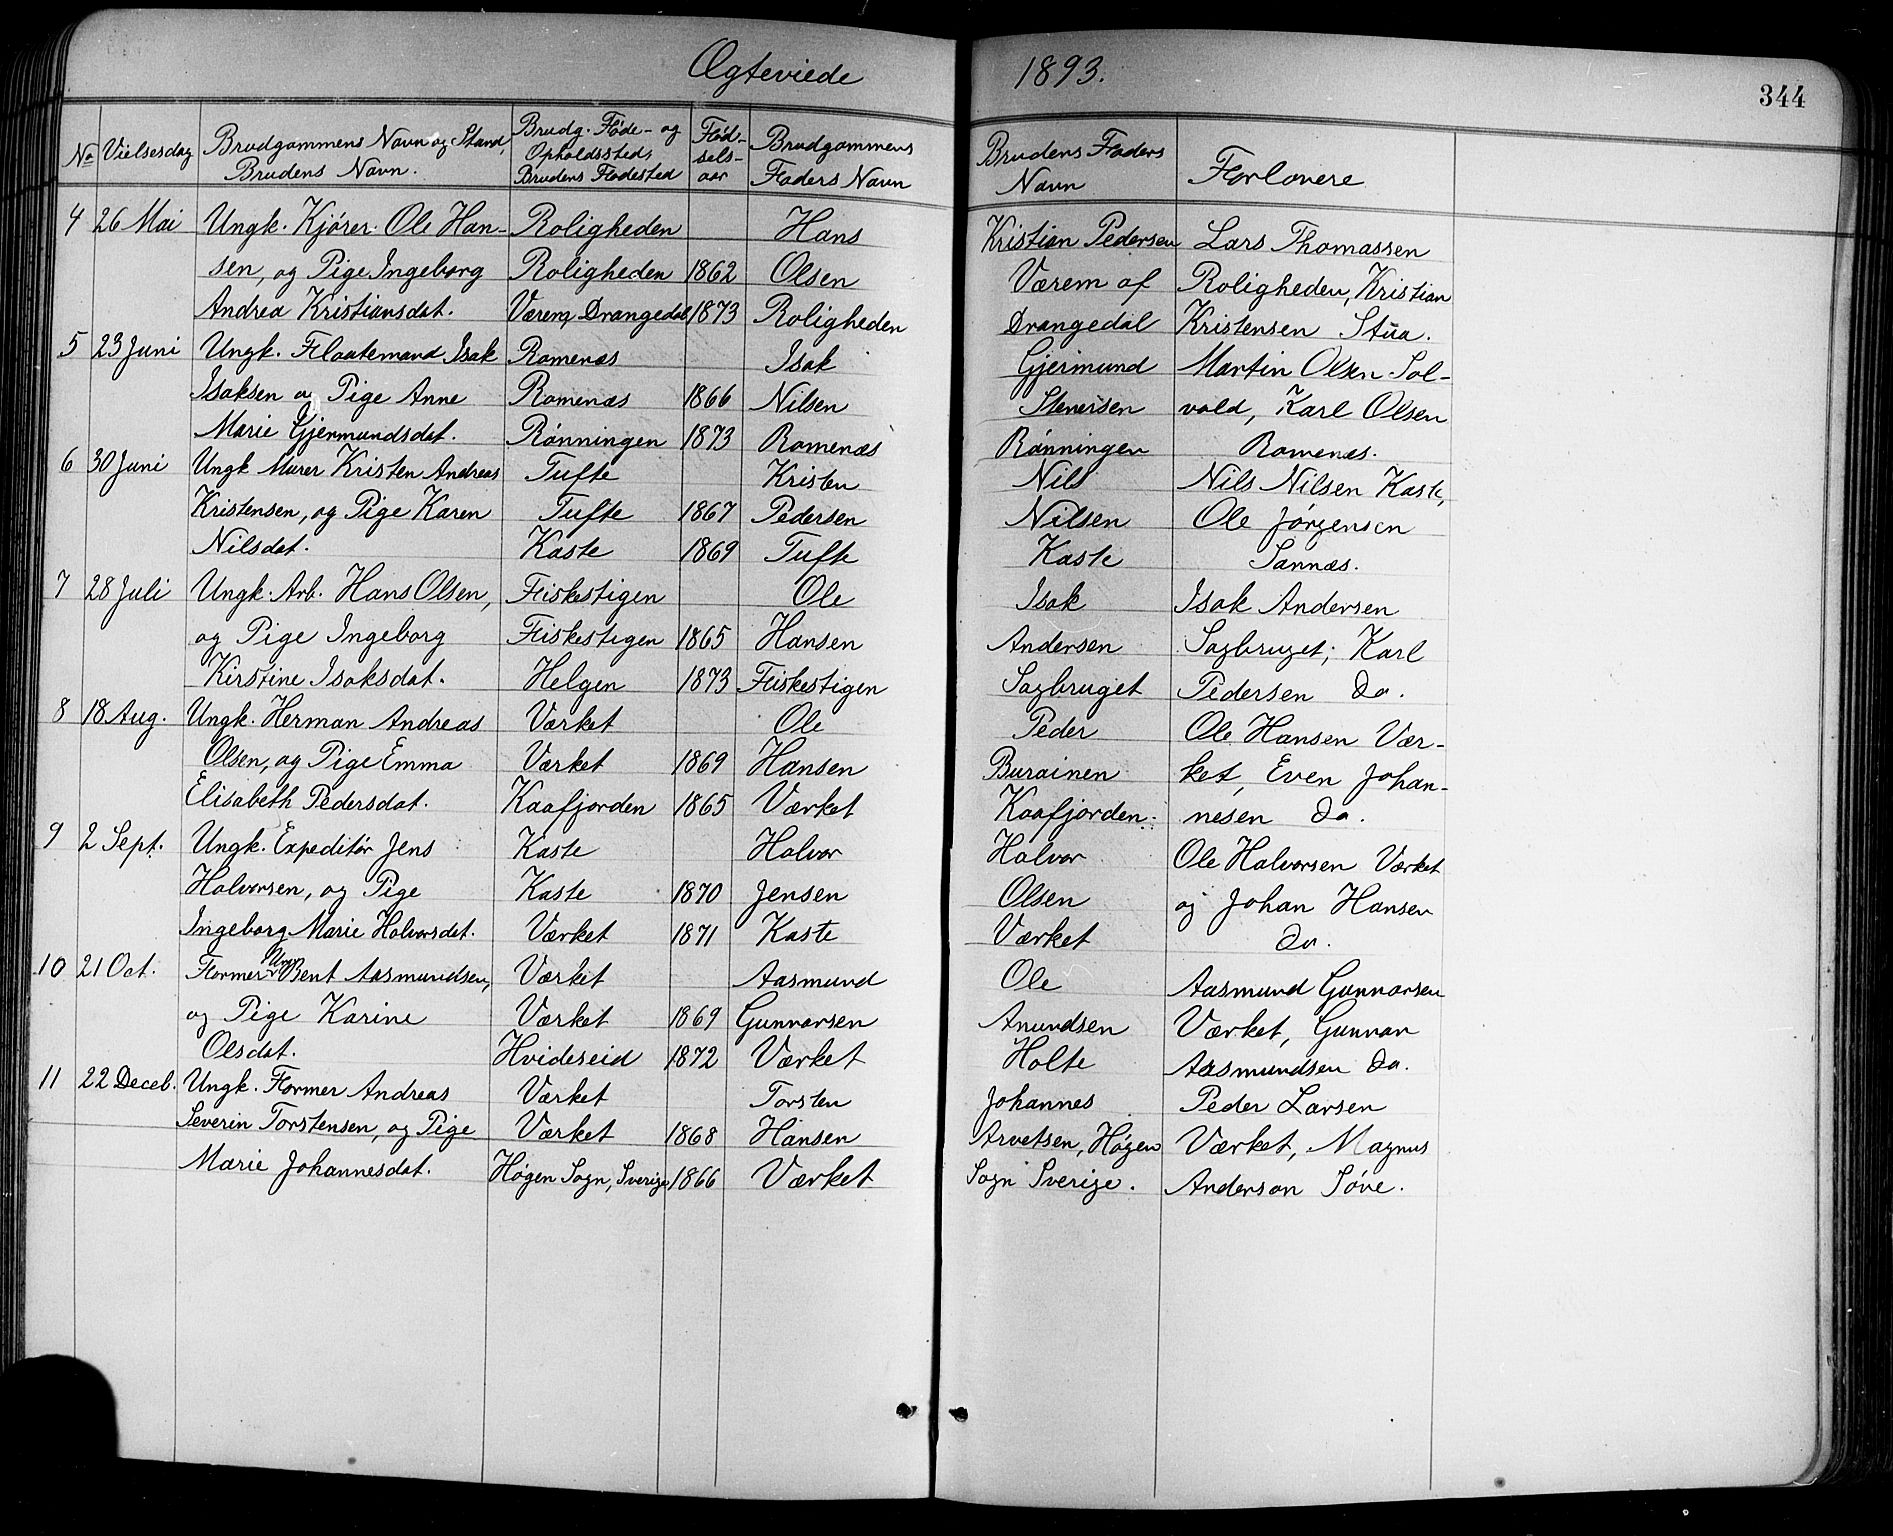 Ægteviede 1893.
344
No Vielsesdag Brudgommens Navn og Stand, Brudens Navn. Brudg. Føde- og Opholdssted, Brudens Fødested Fødselsaar Brudgommens Faders Navn Brudens Faders Navn Forlovere
4 26 Mai Ungk. Kjører. Ole Han- Roligheden Hans Kristian Pedersen Lars Thomassen
sen, og Pige Ingeborg Roligheden 1862 Olsen Værem af Roligheden, Kristian
Andrea Kristiansdat. Værem, Drangedal 1873 Roligheden Drangedal Kristensen Stua.
5 23 Juni Ungk. Flaatemand Isak Romenæs Isak Gjermund Martin Olsen Sol-
Isaksen og Pige Anne Romenæs 1866 Nilsen Stenersen vold, Karl Olsen
Marie Gjermundsdat. Rønningen 1873 Romenæs Rønningen Romenæs.
6 30 Juni Ungk Murer Kristen Andreas Tufte Kristen Nils Nils Nilsen Kaste,
Kristensen, og Pige Karen Tufte 1867 Pedersen Nilsen Ole Jørgensen
Nilsdat. Kaste 1869 Tufte Kaste Sannæs.
7 28 Juli Ungk. Arb. Hans Olsen, Fiskestigen Ole Isak Isak Andersen
og Pige Ingeborg Fiskestigen 1865 Hansen Andersen Sagbruget; Karl
Kirstine Isaksdat. Helgen 1873 Fiskestigen Sagbruget Pedersen do.
8 18 Aug. Ungk. Herman Andreas Værket Ole Peder Ole Hansen Vær-
Olsen, og Pige Emma Værket 1869 Hansen Burainen ket, Even Johan-
Elisabeth Pedersdat. Kaafjorden 1865 Værket Kaafjorden. nesen do.
9 2 Sept. Ungk. Expeditør Jens Kaste Halvor Halvor Ole Halvorsen Værket
Halvorsen, og Pige Kaste 1870 Jensen Olsen og Johan Hansen
Ingeborg Marie Halvorsdat. Værket 1871 Kaste Værket do.
10 21 Oct. Former Ungk Bent Aasmundsen, Værket Aasmund Ole Aasmund Gunnarsen
og Pige Karine Værket 1869 Gunnarsen Anundsen Værket, Gunnar
Olsdat. Hvideseid 1872 Værket Holte Aasmundsen do.
11 22 Deceb. Ungk. Former Andreas Værket Torsten Johannes Peder Larsen
Severin Torstensen, og Pige Værket 1868 Hansen Arvetsen, Høgen Værket, Magnus
Marie Johannesdat. Høgen Sogn, Sverige 1866 Værket Sogn Sverige. Anderson Søve.